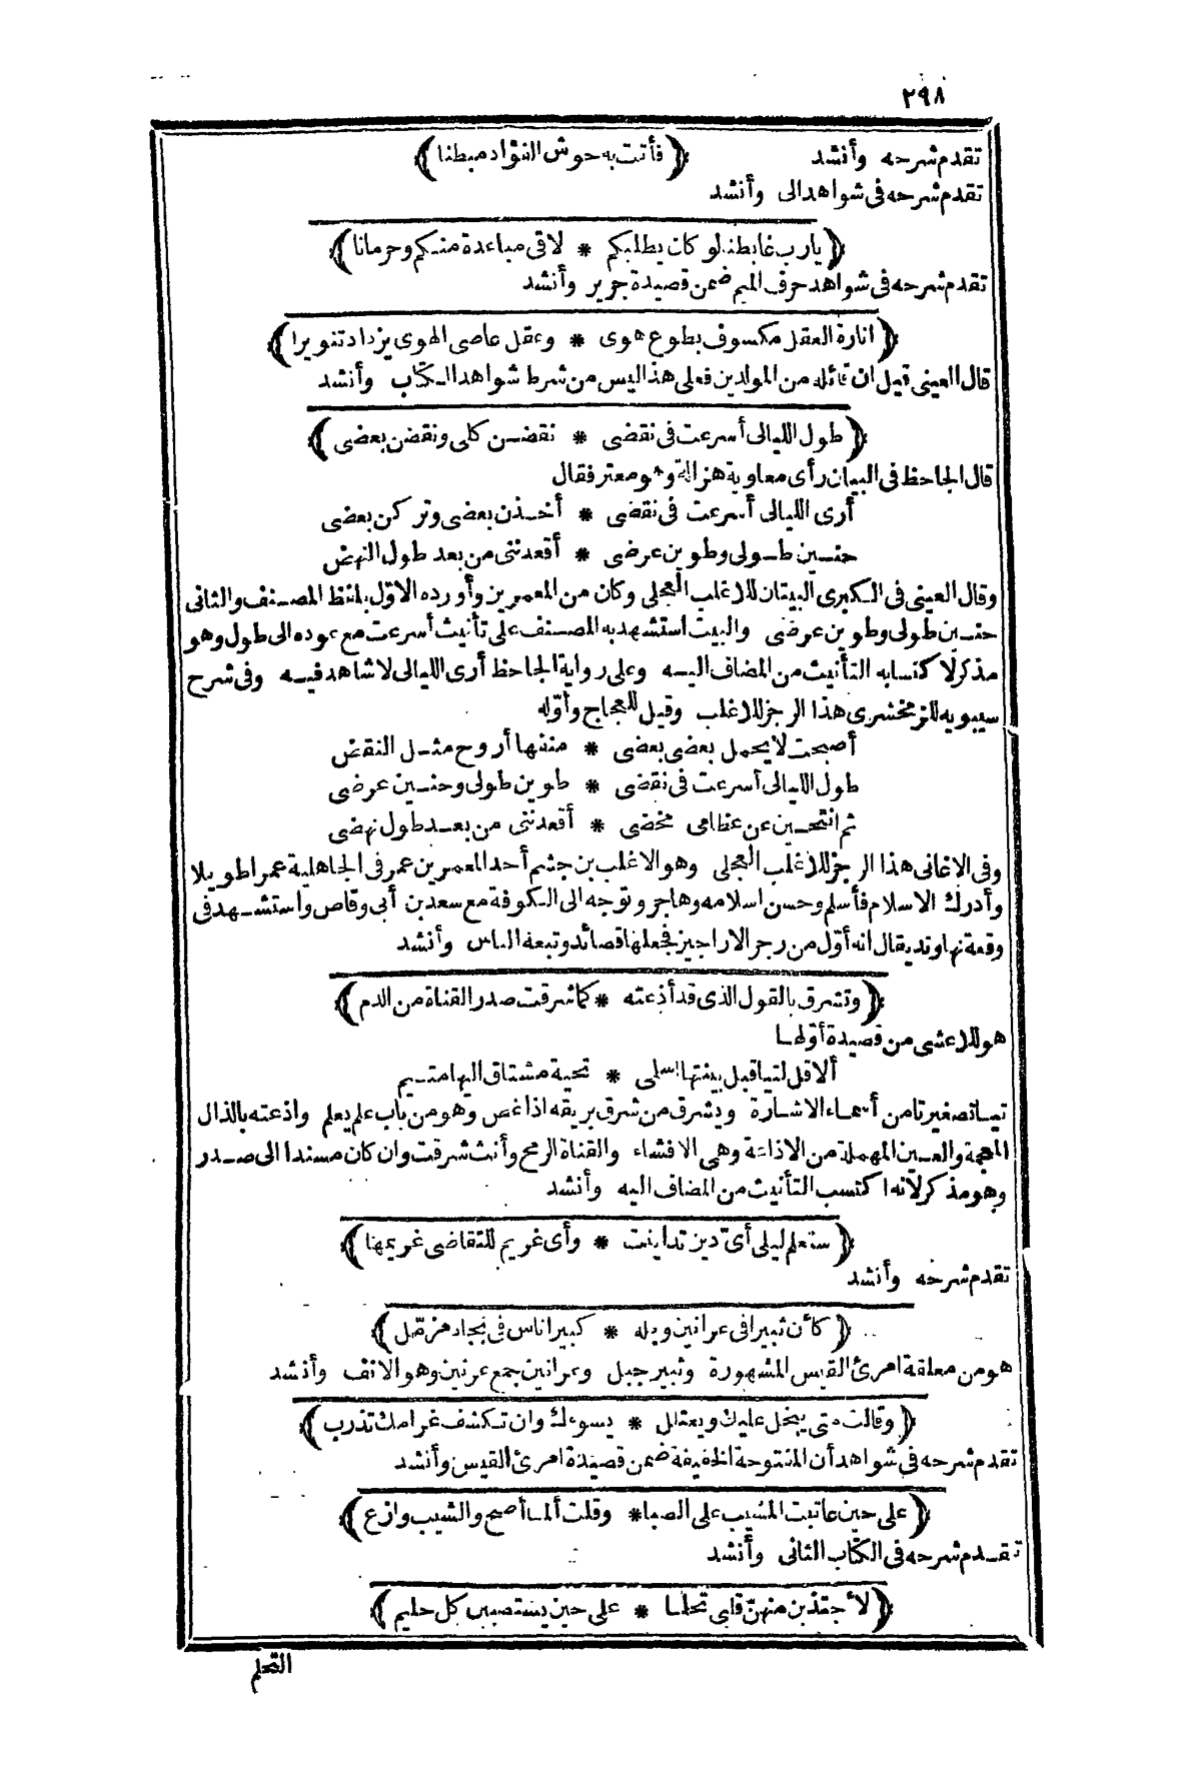 ٢٩٨
تقدم شرحه وأنشد ﴿ فأتت به حوش الفؤاد مبطنا ﴾
تقدم شرحه فى شواهد الى وأنشد
﴿ يارب غابطنا لو كان يطلبكم * لاقى مباعدة منكم وحرمانا ﴾
تقدم شرحه فى شواهد حرف الميم ضمن قصيدة جرير وأنشد
﴿ انارة العقل مكسوف بطوع هوى * وعقل عاصى الهوى يزداد تنويرا ﴾
قال العينى قيل ان قائله من المولدين فعلى هذا ليس من شرط شواهد الكتاب وأنشد
﴿ طول الليالى أسرعت فى نقضى * نقضن كلى ونقضن بعضى ﴾
قال الجاحظ فى البيان رأى معاوية هزاله وهو معتر فقال
أرى الليالى أسرعت فى نقضى * أخذن بعضى وتركن بعضى
حنين طولى وطوين عرضى * أقعدننى من بعد طول النهض
وقال العينى فى الكبرى البيتان للاغلب العجلى وكان من المعمرين وأورده الاوّل بلفظ المصنف والثانى
حنين طولى وطوين عرضى والبيت استشهد به المصنف على تأنيث أسرعت مع عوده الى طول وهو
مذكر لاكتسابه التأنيث من المضاف اليه وعلى رواية الجاحظ أرى الليالى لا شاهد فيه وفى شرح
سيبويه للزمخشرى هذا الرجز للاغلب وقيل للعجاج وأوّله
أصبحت لا يحمل بعضى بعضى * منفها أروح مثل النقض
طول الليالى أسرعت فى نقضى * طوين طولى وحنين عرضى
ثم انتحين عن عظامى مخضى * أقعدننى من بعد طول نهضى
وفى الاغانى هذا الرجز للاغلب العجلى وهو الاغلب بن جشم أحد المعمرين عمر فى الجاهلية عمرا طويلا
وأدرك الاسلام فأسلم وحسن اسلامه وهاجر وتوجه الى الكوفة مع سعد بن أبى وقاص واستشهد فى
وقعة نهاوند يقال انه أوّل من رجز الاراجيز فجعلها قصائد وتبعه الناس وأنشد
﴿ وتشرق بالقول الذى قد أذعته * كما شرقت صدر القناة من الدم ﴾
هو للاعشى من قصيدة أوّلها
ألا قل لتيا قبل بينتها اسلمى * تحية مشتاق اليها متيم
تيا تصغير تا من أسماء الاشارة ويشرق من شرق بريقه اذا غص وهو من باب علم يعلم واذعته بالذال
المعجمة والعين المهملة من الاذاعة وهى الافشاء والقناة الرمح وأنث شرقت وان كان مسندا الى صدر
وهو مذكر لانه اكتسب التأنيث من المضاف اليه وأنشد
﴿ ستعلم ليلى أىّ دين تداينت * وأى غريم للتقاضى غريمها ﴾
تقدم شرحه وأنشد
﴿ كأن ثبيرا فى عرانين وبله * كبير اناس فى بجاد مزمّل ﴾
هو من معلقة امرئ القيس المشهورة وثبير جبل وعرانين جمع عرنين وهو الانف وأنشد
﴿ وقالت متى يبخل عليك ويعتلل * يسؤك وان تكشف غرامك تدرب ﴾
تقدم شرحه فى شواهد أن المفتوحة الخفيفة ضمن قصيدة امرئ القيس وأنشد
﴿ على حين عاتبت المشيب على الصبا * وقلت ألما أصح والشيب وازع ﴾
تقدم شرحه فى الكتاب الثانى وأنشد
﴿ لأجتذبن منهنّ قلبى تحلما * على حين يستصبين كل حليم ﴾
التحلم